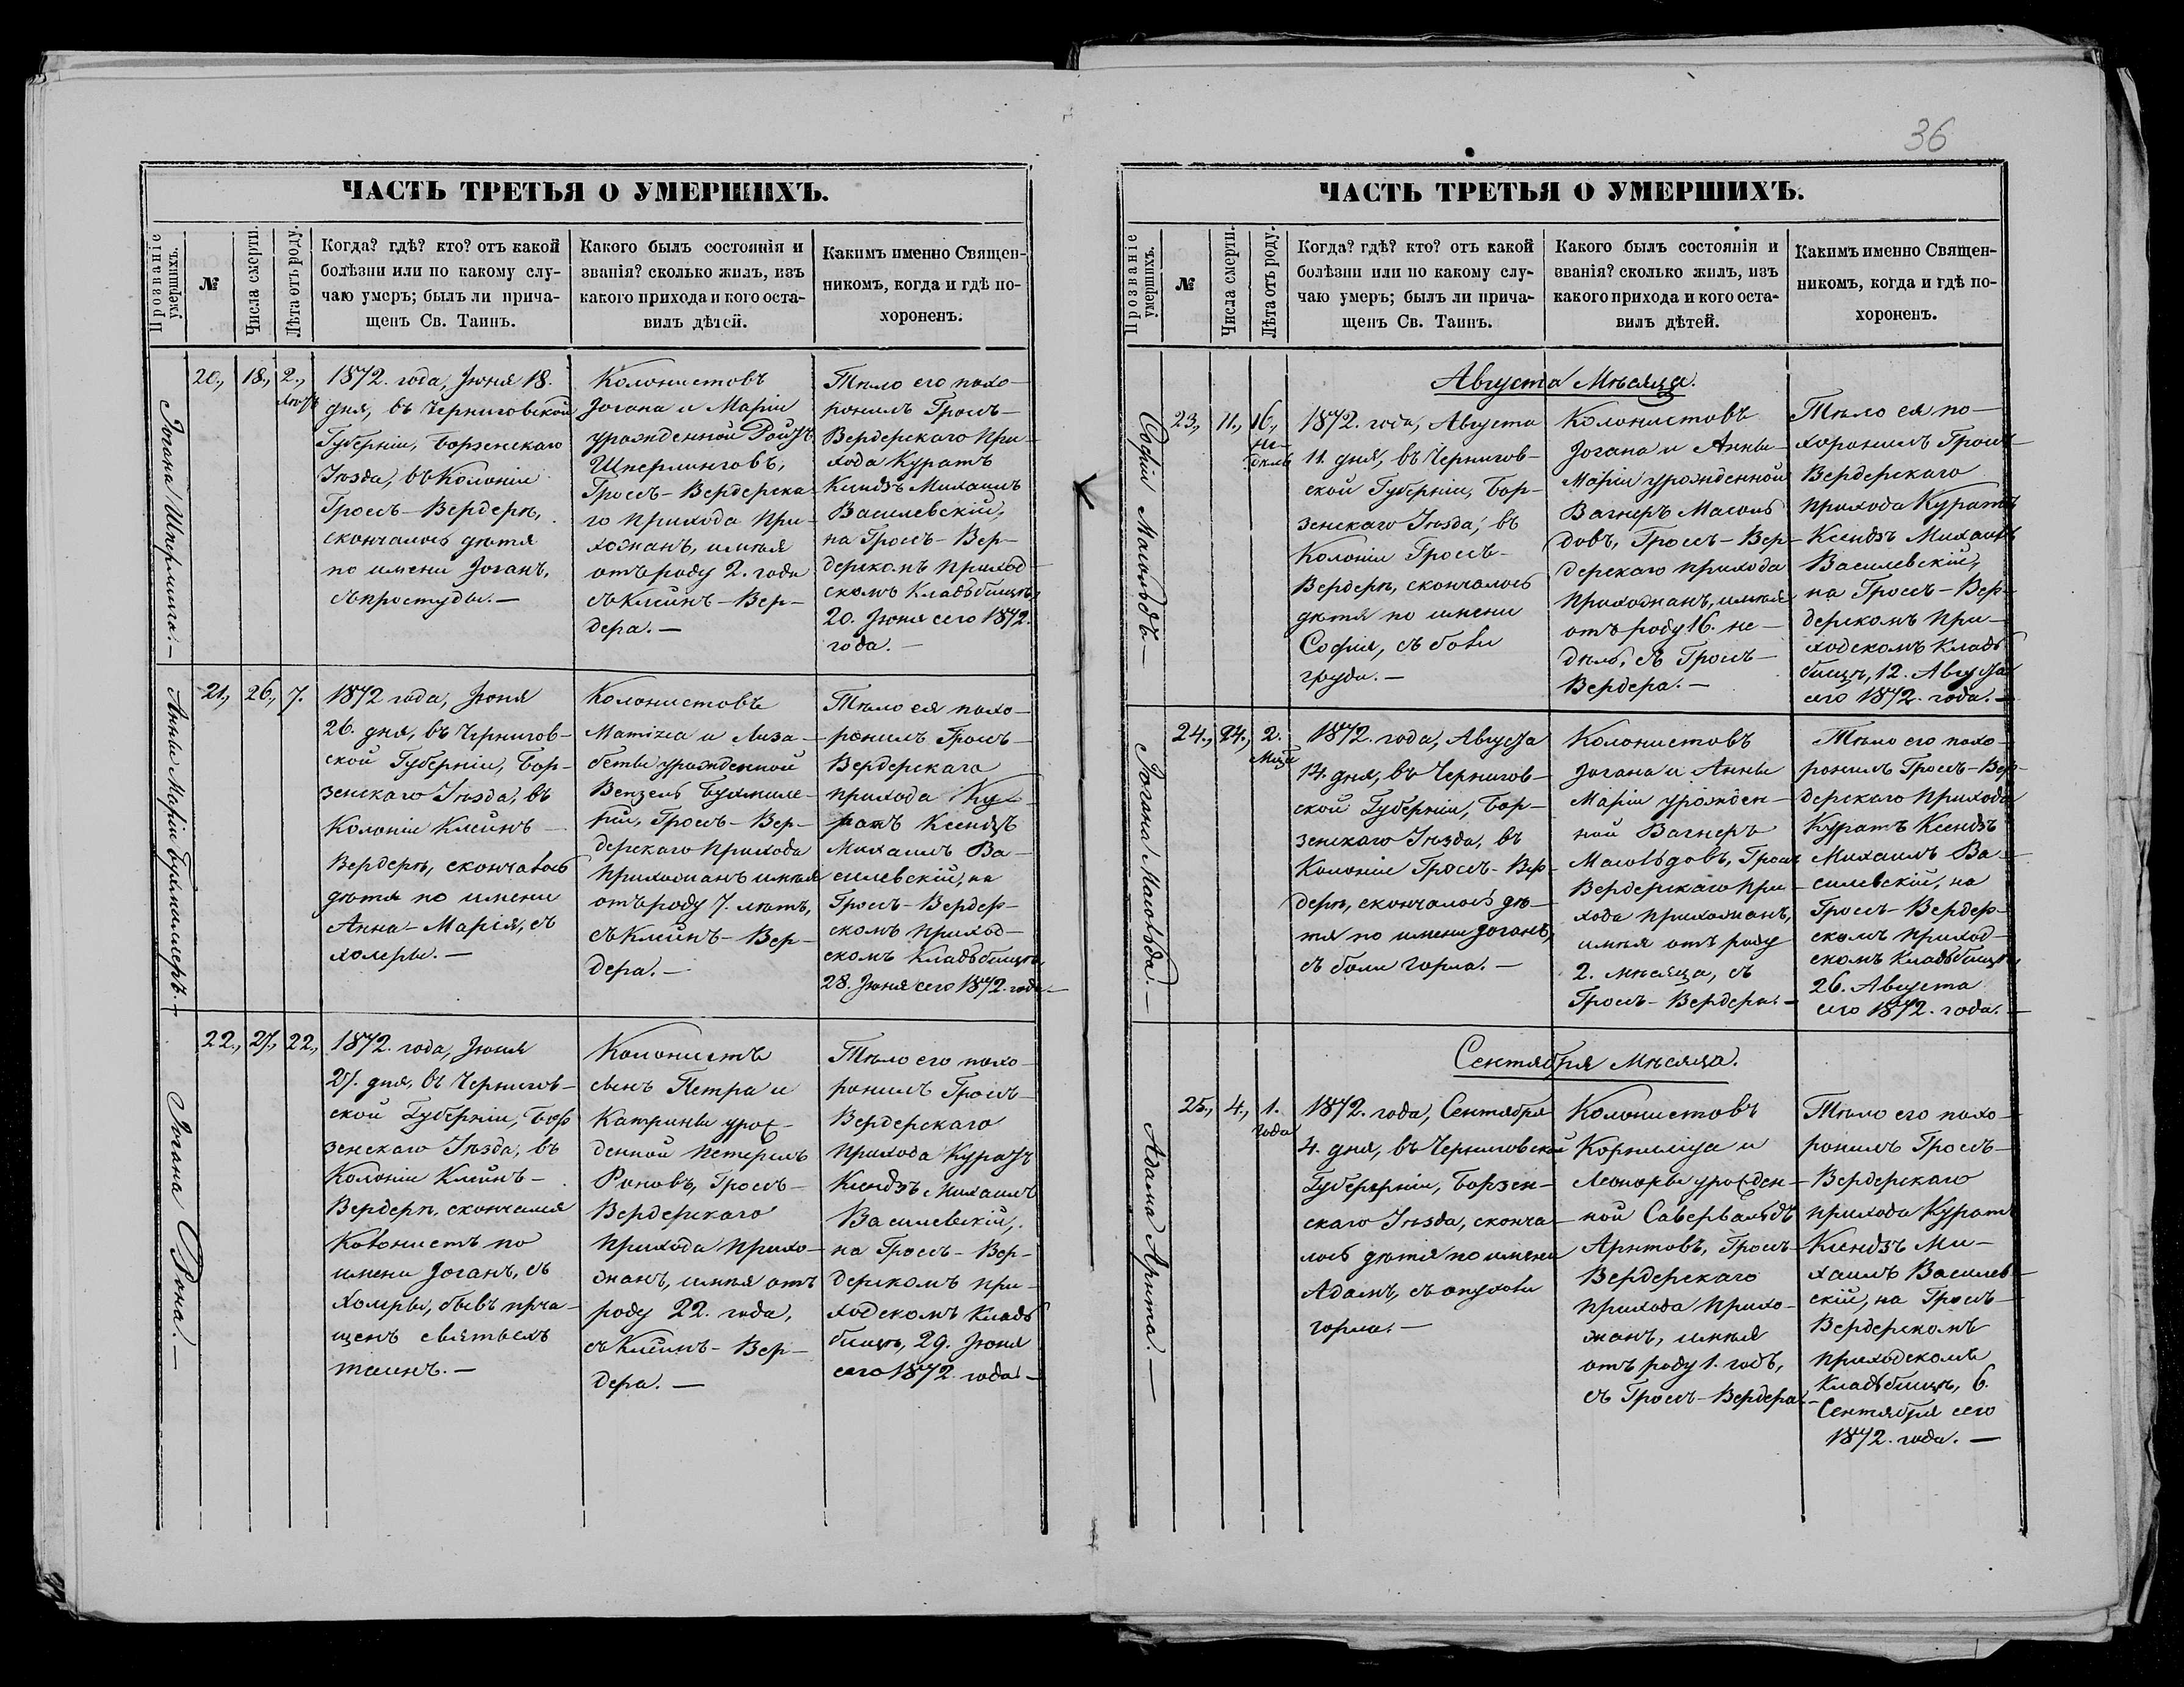 36
ЧАСТЬ ТРЕТЬЯ О УМЕРШИХЪ.
Прозваніе умершихъ.
№
Числа смерти.
Лѣта отъ роду.
Когда? гдѣ? кто? отъ какой
болѣзни или по какому слу-
чаю умеръ; былъ ли прича-
щенъ Св. Таинъ.
Какого былъ состоянія и
званія? сколько жилъ, изъ
какого прихода и кого оста-
вилъ дѣтей.
Какимъ именно Священ-
никомъ, когда и гдѣ по-
хороненъ.
Іогана Шперлинга.—
20., 18., 2.,
1872. года, Іюня 18.
дня, въ Черниговской
Губерніи, Борзенскаго
Уѣзда, въ Колоніи
Гросъ-Вердерѣ,
скончалось дѣтя
по имени Іоганъ,
съ простуды.—
Колонистовъ
Іогана и Маріи
урожденной
Шперлинговъ,
Гросъ-Вердерска-
го прихода При-
хожанъ, имѣя
отъ роду 2. года
съ Клейнъ-Вер-
дера.—
Тѣло его похо-
ронилъ Гросъ-
Вердерскаго При-
хода Куратъ
Ксендзъ Михаилъ
Василевскій,
на Гросъ-Вер-
дерскомъ приход-
скомъ Кладбищѣ,
20. Іюня сего 1872.
года.—
Анны Маріи Бухмиллеръ.—
21., 26., 7.
1872 года, Іюня
26. дня, въ Чернигов-
ской Губерніи, Бор-
зенскаго Уѣзда, въ
Колоніи Клейнъ-
Вердерѣ, скончалось
дѣтя по имени
Анна-Марія, съ
холеры.—
Колонистовъ
Матиса и Лиза-
беты урожденной
Вензель Бухмиле-
рій, Гросъ-Вер-
дерскаго прихода
прихожанъ имѣя
отъ роду 7. лѣтъ,
съ Клейнъ-Вер-
дера.—
Тѣло ея похо-
ронилъ Гросъ-
Вердерскаго
прихода Ку-
ратъ Ксендзъ
Михаилъ Ва-
силевскій, на
Гросъ-Вердер-
скомъ приход-
скомъ Кладбищѣ,
28. Іюня сего 1872. года.—
Іогана Рона.—
22., 27., 22.,
1872. года, Іюня
27. дня, въ Чернигов-
ской Губерніи, Бор-
зенскаго Уѣзда, въ
Колоніи Клейнъ-
Вердерѣ, скончался
Колонистъ по
имени Іоганъ, съ
холеры, бывъ прича-
щенъ святыхъ
таинъ.—
Колонистъ
сынъ Петра и
Катрины урож-
денной Петерсъ
Роновъ, Гросъ-
Вердерскаго
прихода прихо-
жанъ, имѣя отъ
роду 22. года,
съ Клейнъ-Вер-
дера.—
Тѣло его похо-
ронилъ Гросъ-
Вердерскаго
прихода Куратъ
Ксендзъ Михаилъ
Василевскій,
на Гросъ-Вер-
дерскомъ при-
ходскомъ Клад-
бищѣ, 29. Іюня
сего 1872. года.—
ЧАСТЬ ТРЕТЬЯ О УМЕРШИХЪ.
Прозваніе умершихъ.
№
Числа смерти.
Лѣта отъ роду.
Когда? гдѣ? кто? отъ какой
болѣзни или по какому слу-
чаю умеръ; былъ ли прича-
щенъ Св. Таинъ.
Какого былъ состоянія и
званія? сколько жилъ, изъ
какого прихода и кого оста-
вилъ дѣтей.
Какимъ именно Священ-
никомъ, когда и гдѣ по-
хороненъ.
Августа Мѣсяца.
Софіи Масольдъ—
23., 11., 16.,
не-
дѣль
1872. года, Августа
11. дня, въ Чернигов-
ской Губерніи, Бор-
зенскаго Уѣзда, въ
Колоніи Гросъ-
Вердерѣ, скончалось
дѣтя по имени
Софія, съ боли
груди.—
Колонистовъ
Іогана и Анны-
Маріи урожденной
Вагнеръ Масоль-
довъ, Гросъ-Вер-
дерскаго прихода
прихожанъ, имѣя
отъ роду 16. не-
дѣль, съ Гросъ-
Вердера.—
Тѣло ея по-
хоронилъ Гросъ-
Вердерскаго
прихода Куратъ
Ксендзъ Михаилъ
Василевскій,
на Гросъ-Вер-
дерскомъ при-
ходскомъ Клад-
бищѣ, 12. Августа
сего 1872. года.—
Іогана Масольда.—
24., 24., 2.
1872. года, Августа
14. дня, въ Чернигов-
ской Губерніи, Бор-
зенскаго Уѣзда, въ
Колоніи Гросъ-Вер-
дерѣ, скончалось дѣ-
тя по имени Іоганъ,
съ боли горла.—
Колонистовъ
Іогана и Анны
Маріи урожден-
ной Вагнеръ
Масольдовъ, Гросъ
Вердерскаго при-
хода прихожанъ,
имѣя отъ роду
2. мѣсяца, съ
Гросъ-Вердера.—
Тѣло его похо-
ронилъ Гросъ-Вер-
дерскаго прихода
Куратъ Ксендзъ
Михаилъ Ва-
силевскій, на
Гросъ-Вердер-
скомъ приход-
скомъ Кладбищѣ
26. Августа
сего 1872. года.—
Сентября Мѣсяца.
Адама Арнта.—
25., 4., 1.
года
1872. года, Сентября
4. дня, въ Черниговской
Губерніи, Борзен-
скаго Уѣзда, сконча-
лось дѣтя по имени
Адамъ, съ опухоли
горла.—
Колонистовъ
Корниліуса и
Леоноры урожден-
ной Савервальдъ
Арнтовъ, Гросъ-
Вердерскаго
прихода прихо-
жанъ, имѣя
отъ роду 1. годъ,
съ Гросъ-Вердера.—
Тѣло его похо-
ронилъ Гросъ-
Вердерскаго
прихода Куратъ
Ксендзъ Ми-
хаилъ Василев-
скій, на Гросъ-
Вердерскомъ
приходскомъ
Кладбищѣ, 6.
Сентября сего
1872. года.—